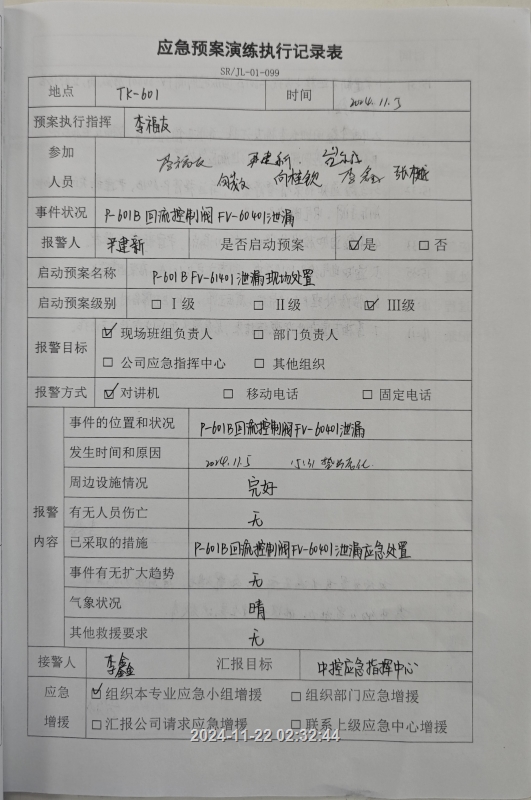 应急预案演练执行记录表
SR/JL-01-099
地点 TK-601 时间 2024.11.5
预案执行指挥 李福友
参加 李福友
人员 李鑫 张樾
事件状况 P-601B回流控制阀FV-60401泄漏
报警人 建新 是否启动预案 ☑是 □否
启动预案名称 P-601B FV-61401泄漏现场处置
启动预案级别 □Ⅰ级 □Ⅱ级 ☑Ⅲ级
报警目标 ☑现场班组负责人 □部门负责人
□公司应急指挥中心 □其他组织
报警方式 ☑对讲机 □移动电话 □固定电话
报警内容
事件的位置和状况 P-601B回流控制阀FV-60401泄漏
发生时间和原因 2024.11.5 15:31 垫片老化
周边设施情况 完好
有无人员伤亡 无
已采取的措施 P-601B回流控制阀FV-60401泄漏应急处置
事件有无扩大趋势 无
气象状况 晴
其他救援要求 无
接警人 李鑫 汇报目标 中控应急指挥中心
应急 ☑组织本专业应急小组增援 □组织部门应急增援
增援 □汇报公司请求应急增援 □联系上级应急中心增援
2024-11-22 02:32:44